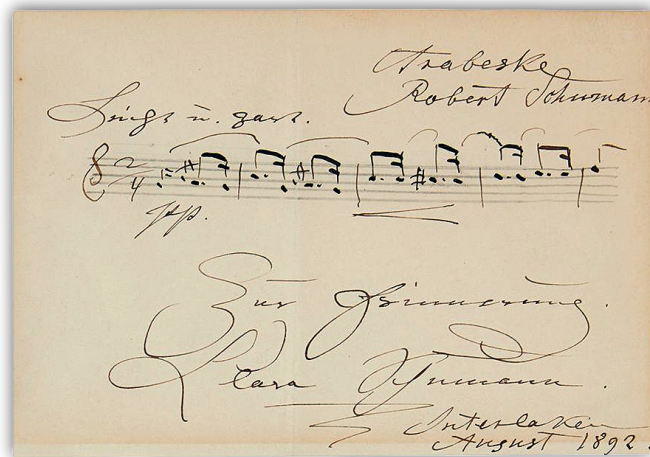 Arabeske
Robert Schumann
Leicht u. zart.
2
4
pp.
Zur Erinnerung.
Clara Schumann.
Interlaken
August 1892.